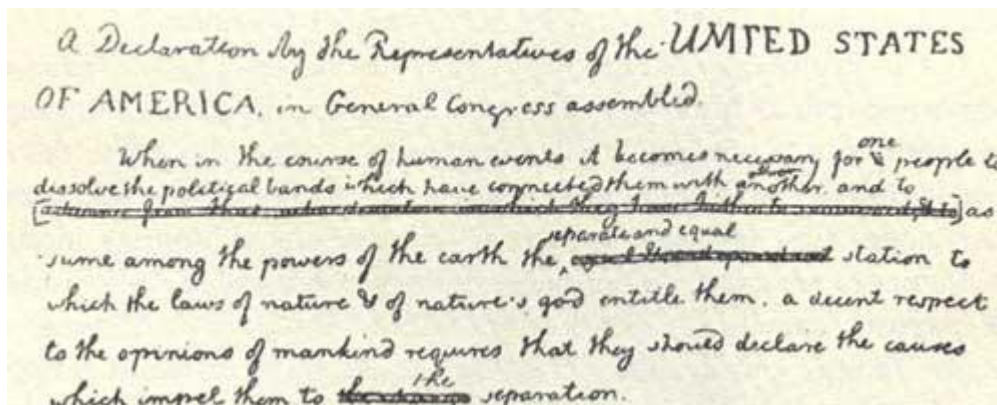 a Declaration by the Representatives of the UNITED STATES
OF AMERICA, in General Congress assembled.
When in the course of human events it becomes necessary for one people to
dissolve the political bands which have connected them with another, and to
as
separate and equal
sume among the powers of the earth the station to
which the laws of nature & of nature's god entitle them, a decent respect
to the opinions of mankind requires that they should declare the causes
the
which impel them to separation.